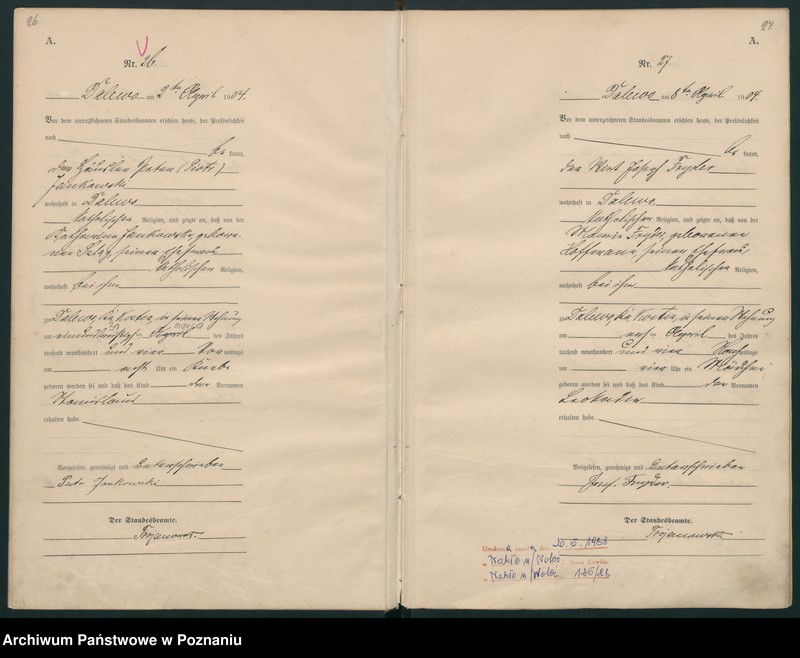 26.
A.
Nr. 26.
Dalewo am 2ten April 1904.
Vor dem unterzeichneten Standesbeamten erschien heute, der Persönlichkeit
nach
be kannt,
den Häusler (Piotr)
Jankowski
wohnhaft in Dalewo
katholischer Religion, und zeigte an, daß von der
Katharina Jankowska, gebore-
nen seiner Ehefrau
katholischen Religion,
wohnhaft bei ihm
Dalewo, in seiner Wohnung
am des Jahres
tausend neunhundert und vier Vormittags
um acht Uhr ein Knabe
geboren worden sei und daß das Kind den Vornamen
Stanislaus
erhalten habe.
Vorgelesen, genehmigt und unterschrieben
Piotr Jankowski
Der Standesbeamte.
Trojanowski.
27.
A.
Nr. 27.
Dalewo am 8ten April 1904.
Vor dem unterzeichneten Standesbeamten erschien heute, der Persönlichkeit
nach
be kannt,
der Wirt Josef Fryder
wohnhaft in Dalewo
katholischer Religion, und zeigte an, daß von der
Fryder, geborenen
Hoffmann, seiner Ehefrau,
katholischen Religion,
wohnhaft bei ihm
Dalewo, in seiner Wohnung
am April des Jahres
tausend neunhundert und vier Nachmittags
um vier Uhr ein Mädchen
geboren worden sei und daß das Kind den Vornamen
Leokadia
erhalten habe.
Vorgelesen, genehmigt und unterschrieben
Josef Fryder.
Der Standesbeamte.
Trojanowski.
dnia 1958
w Nakło n/Not
w Nakło n/Not 125/58
Archiwum Państwowe w Poznaniu